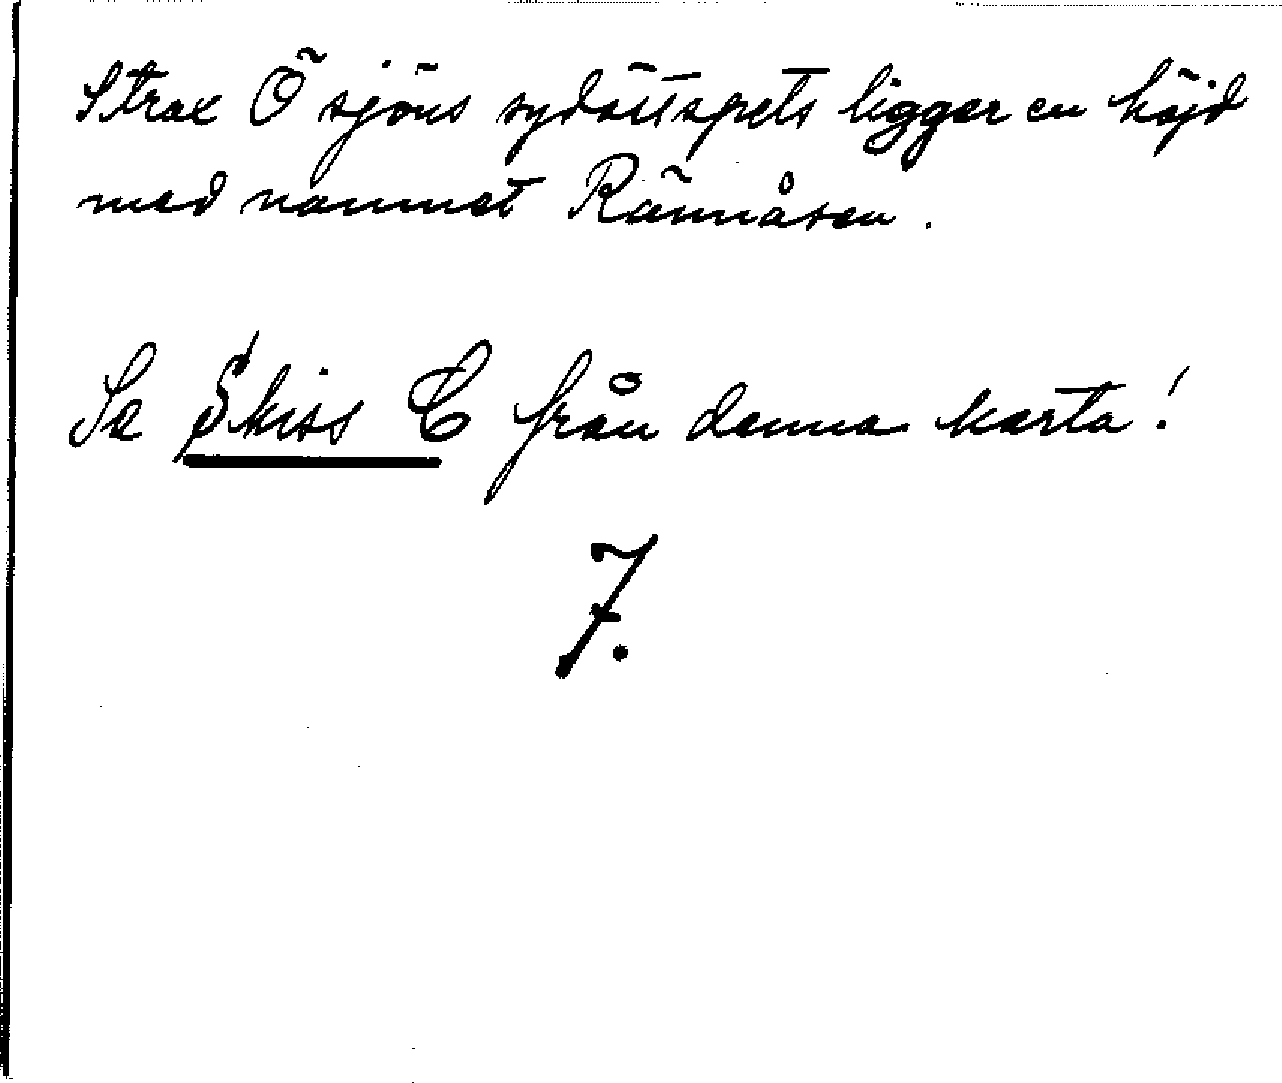 Strax Ö sjöns sydöstspets ligger en höjd
med namnet Rännåsen.
Se Skiss C från denna karta!
7.